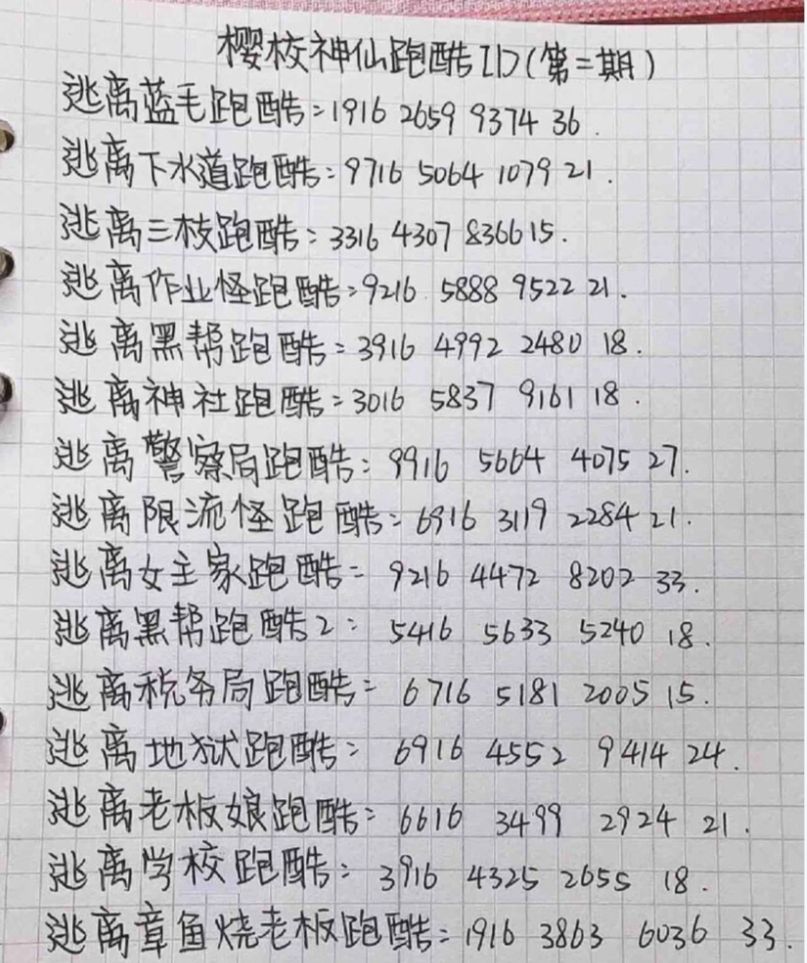 樱校神仙跑酷ID(第二期)
逃离蓝毛跑酷:1916 2659 9374 36.
逃离下水道跑酷:9716 5064 1079 21.
逃离三枝跑酷:3316 4307 8366 15.
逃离作业怪跑酷:9216 5888 9522 21.
逃离黑帮跑酷:3916 4992 2480 18.
逃离神社跑酷:3016 5837 9161 18.
逃离警察局跑酷:9916 5664 4075 27.
逃离限流怪跑酷:6916 3119 2284 21.
逃离女主家跑酷:9216 4472 8202 33.
逃离黑帮跑酷2:5416 5633 5240 18.
逃离税务局跑酷:6716 5181 2005 15.
逃离地狱跑酷:6916 4552 9414 24.
逃离老板娘跑酷:6616 3499 2924 21.
逃离学校跑酷:3916 4325 2655 18.
逃离章鱼烧老板跑酷:1916 3863 6036 33.